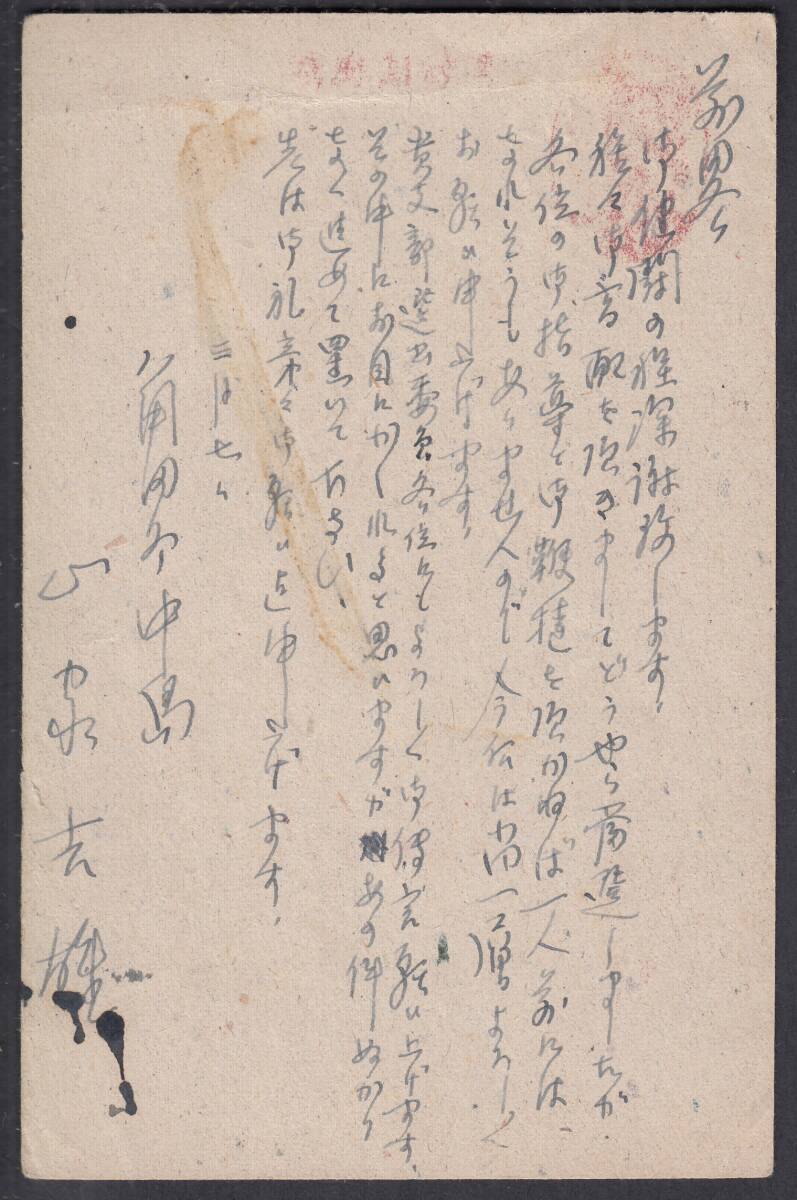 前略
御健闘の程深謝致します、
種々御高配を頂きましてどうやら当選しましたが
各位の御指導と御鞭撻を頂かねば一人前には、
なれそうもありませんので今后は尚一層よろしく
お願ひ申上げます、
貴支部選出委員各位にもよろしく御傳言願ひ上げます、
その中にお目にかゝれると思ひますが あの件ぬかり
なく進めて置いて下さい、
先は御礼旁々御願ひ迄申上げます、
三月七日
中島
山家吉雄